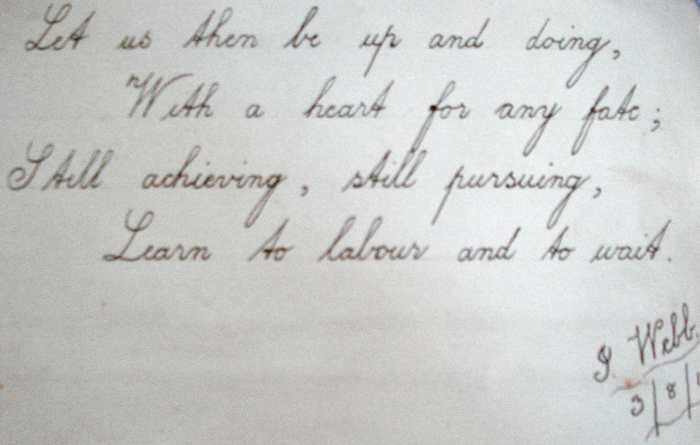 Let us then be up and doing,
With a heart for any fate;
Still achieving, still pursuing,
Learn to labour and to wait.
Webb.
3/8/